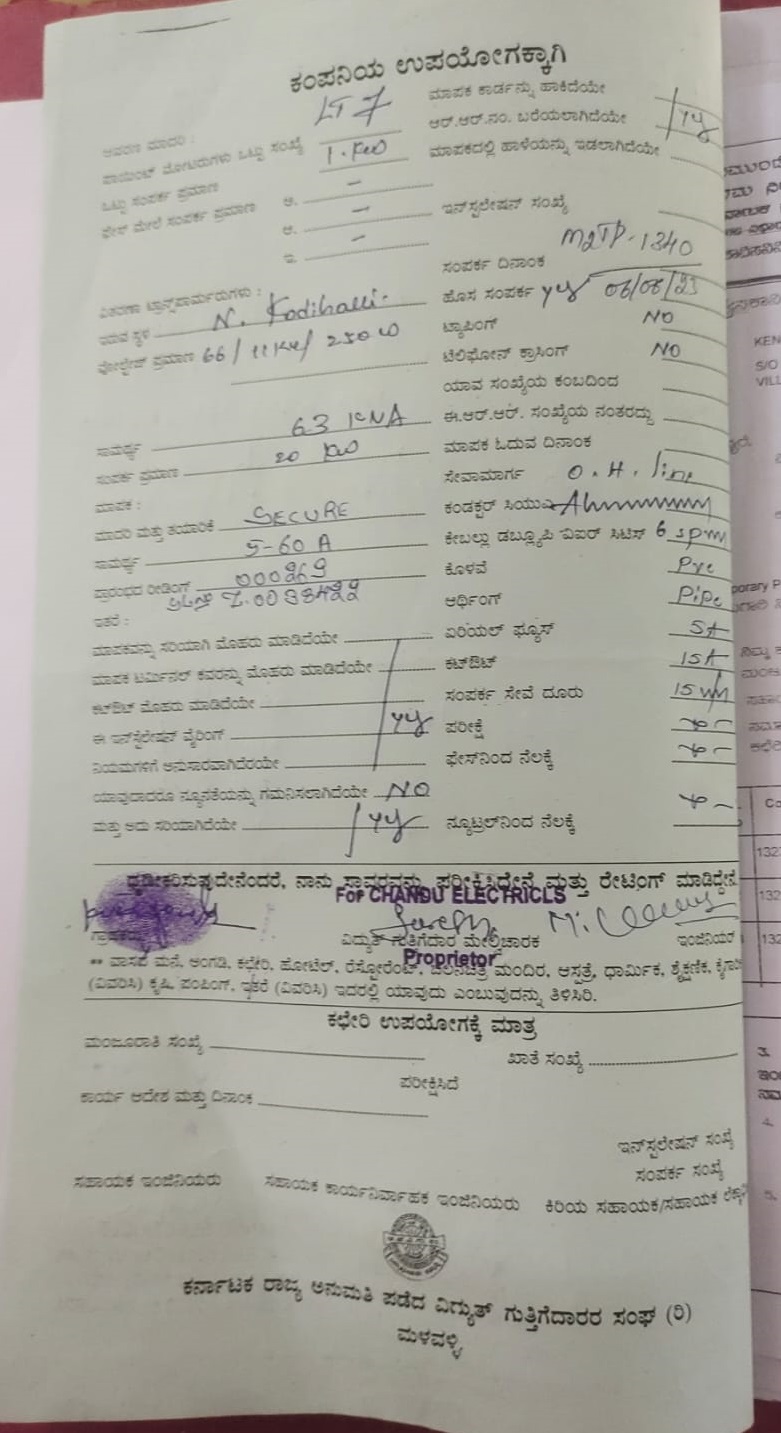 ಕಂಪನಿಯ ಉಪಯೋಗಕ್ಕಾಗಿ
LT 7
ಮಾಪಕ ಕಾರ್ಡನ್ನು ಹಾಕಿದೆಯೇ
ಆರ್.ಆರ್.ನಂ. ಬರೆಯಲಾಗಿದೆಯೇ
ಪಾಯಿಂಟ್ ಮೋಟರುಗಳು ಒಟ್ಟು ಸಂಖ್ಯೆ
ಮಾಪಕದಲ್ಲಿ ಹಾಳೆಯನ್ನು ಇಡಲಾಗಿದೆಯೇ
ಒಟ್ಟು ಸಂಪರ್ಕ ಪ್ರಮಾಣ
ಫೇಸ್ ಮೇಲೆ ಸಂಪರ್ಕ ಪ್ರಮಾಣ
ಇನ್‌ಸ್ಟಲೇಷನ್ ಸಂಖ್ಯೆ
M2TP-1340
ಸಂಪರ್ಕ ದಿನಾಂಕ
ಹೊಸ ಸಂಪರ್ಕ
ಇರುವ ಸ್ಥಳ N. Kodihalli
ಟ್ಯಾಪಿಂಗ್ NO
ವೋಲ್ಟೇಜ್ ಪ್ರಮಾಣ 66/11KV/250
ಟೆಲಿಫೋನ್ ಕ್ರಾಸಿಂಗ್ NO
ಯಾವ ಸಂಖ್ಯೆಯ ಕಂಬದಿಂದ
ಸಾಮರ್ಥ್ಯ 63 KVA
ಈ.ಆರ್.ಆರ್. ಸಂಖ್ಯೆಯ ನಂತರದ್ದು
ಸಂಪರ್ಕ ಪ್ರಮಾಣ 20 KW
ಮಾಪಕ ಓದುವ ದಿನಾಂಕ
ಮಾಪಕ :
ಸೇವಾಮಾರ್ಗ O.H. line
ಮಾದರಿ ಮತ್ತು ತಯಾರಿಕೆ SECURE
ಕಂಡಕ್ಟರ್ ಸಿಯು
ಸಾಮರ್ಥ್ಯ 5-60 A
ಕೇಬಲ್ಲು ಡಬ್ಲ್ಯೂಪಿ ವಿಐಆರ್ ಸಿಟಿಸ್
ಪ್ರಾರಂಭದ ರೀಡಿಂಗ್ 000269
ಕೊಳವೆ PVC
ಇತರೆ :
ಆರ್ಥಿಂಗ್ PiPe
ಮಾಪಕವನ್ನು ಸರಿಯಾಗಿ ಮೊಹರು ಮಾಡಿದೆಯೇ
ಏರಿಯಲ್ ಫ್ಯೂಸ್ 5A
ಮಾಪಕ ಟರ್ಮಿನಲ್ ಕವರನ್ನು ಮೊಹರು ಮಾಡಿದೆಯೇ
ಕಟ್‌ಔಟ್ 15A
ಕಟ್‌ಔಟ್ ಮೊಹರು ಮಾಡಿದೆಯೇ
ಸಂಪರ್ಕ ಸೇವೆ ದೂರು
ಈ ಇನ್‌ಸ್ಟಲೇಷನ್ ವೈರಿಂಗ್
ಪರೀಕ್ಷೆ
ನಿಯಮಗಳಿಗೆ ಅನುಸಾರವಾಗಿದೆಯೇ
ಫೇಸ್‌ನಿಂದ ನೆಲಕ್ಕೆ
ಯಾವುದಾದರೂ ನ್ಯೂನತೆಯನ್ನು ಗಮನಿಸಲಾಗಿದೆಯೇ NO
ಮತ್ತು ಅದು ಸರಿಯಾಗಿದೆಯೇ
ನ್ಯೂಟ್ರಲ್‌ನಿಂದ ನೆಲಕ್ಕೆ
ದೃಢೀಕರಿಸುವುದೇನೆಂದರೆ, ನಾನು ಸ್ಥಾವರವನ್ನು ಪರೀಕ್ಷಿಸಿದ್ದೇನೆ ಮತ್ತು ರೇಟಿಂಗ್ ಮಾಡಿದ್ದೇನೆ
For CHANDU ELECTRICLS
ವಿದ್ಯುತ್ ಗುತ್ತಿಗೆದಾರ ಮೇಲ್ವಿಚಾರಕ
ಇಂಜಿನಿಯರ್
Proprietor
** ವಾಸದ ಮನೆ, ಅಂಗಡಿ, ಕಛೇರಿ, ಹೋಟೆಲ್, ರೆಸ್ಟೋರೆಂಟ್, ಚಲನಚಿತ್ರ ಮಂದಿರ, ಆಸ್ಪತ್ರೆ, ಧಾರ್ಮಿಕ, ಶೈಕ್ಷಣಿಕ,
(ವಿವರಿಸಿ) ಕೃಷಿ, ಪಂಪಿಂಗ್, ಇತರೆ (ವಿವರಿಸಿ) ಇದರಲ್ಲಿ ಯಾವುದು ಎಂಬುವುದನ್ನು ತಿಳಿಸಿರಿ.
ಕಛೇರಿ ಉಪಯೋಗಕ್ಕೆ ಮಾತ್ರ
ಮಂಜೂರಾತಿ ಸಂಖ್ಯೆ
ಖಾತೆ ಸಂಖ್ಯೆ
ಪರೀಕ್ಷಿಸಿದೆ
ಕಾರ್ಯ ಆದೇಶ ಮತ್ತು ದಿನಾಂಕ
ಇನ್‌ಸ್ಟಲೇಷನ್ ಸಂಖ್ಯೆ
ಸಂಪರ್ಕ ಸಂಖ್ಯೆ
ಸಹಾಯಕ ಇಂಜಿನಿಯರು
ಸಹಾಯಕ ಕಾರ್ಯನಿರ್ವಾಹಕ ಇಂಜಿನಿಯರು
ಕಿರಿಯ ಸಹಾಯಕ/ಸಹಾಯಕ
ಕರ್ನಾಟಕ ರಾಜ್ಯ ಅನುಮತಿ ಪಡೆದ ವಿದ್ಯುತ್ ಗುತ್ತಿಗೆದಾರರ ಸಂಘ (ರಿ)
ಮಳವಳ್ಳಿ